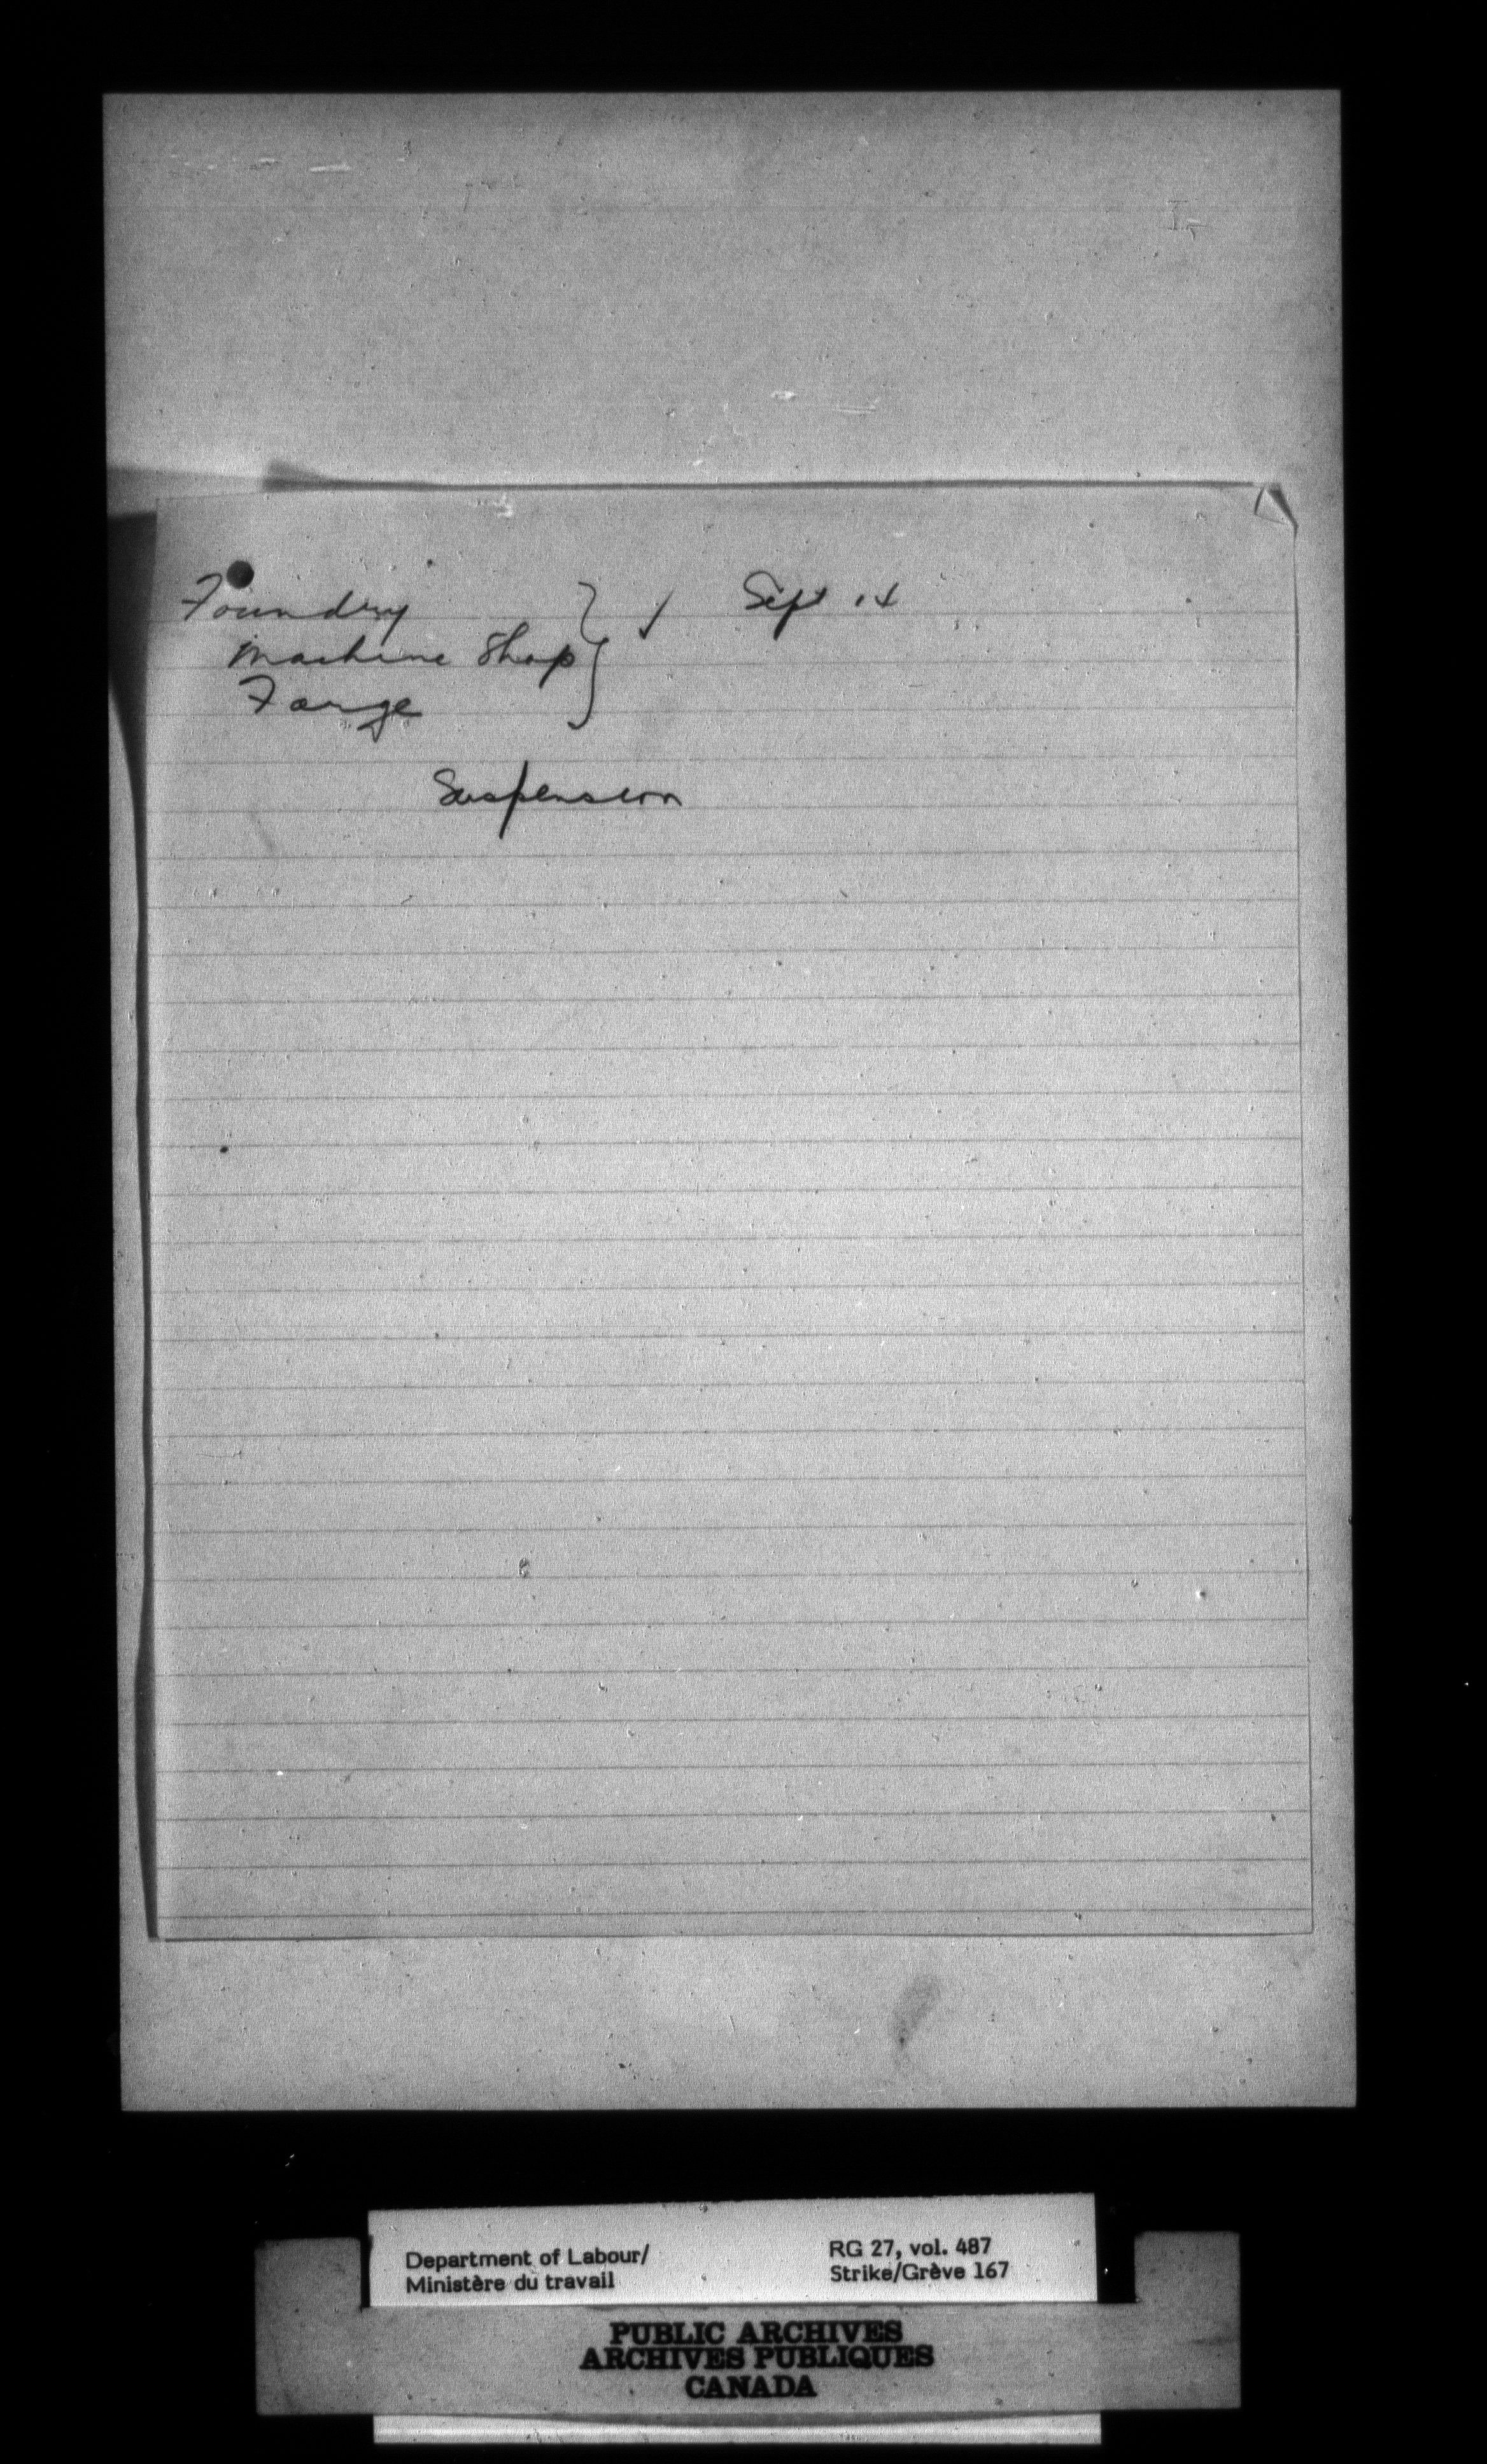 Foundry } ✓ Sept 14
Machine Shop
Forge
Suspension
Department of Labour/
Ministère du travail
RG 27, vol. 487
Strike/Grève 167
PUBLIC ARCHIVES
ARCHIVES PUBLIQUES
CANADA